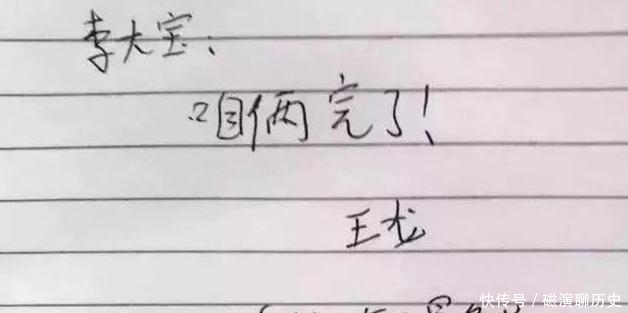 李大宝：
咱俩完了！
王龙
快传号／磁演聊历史